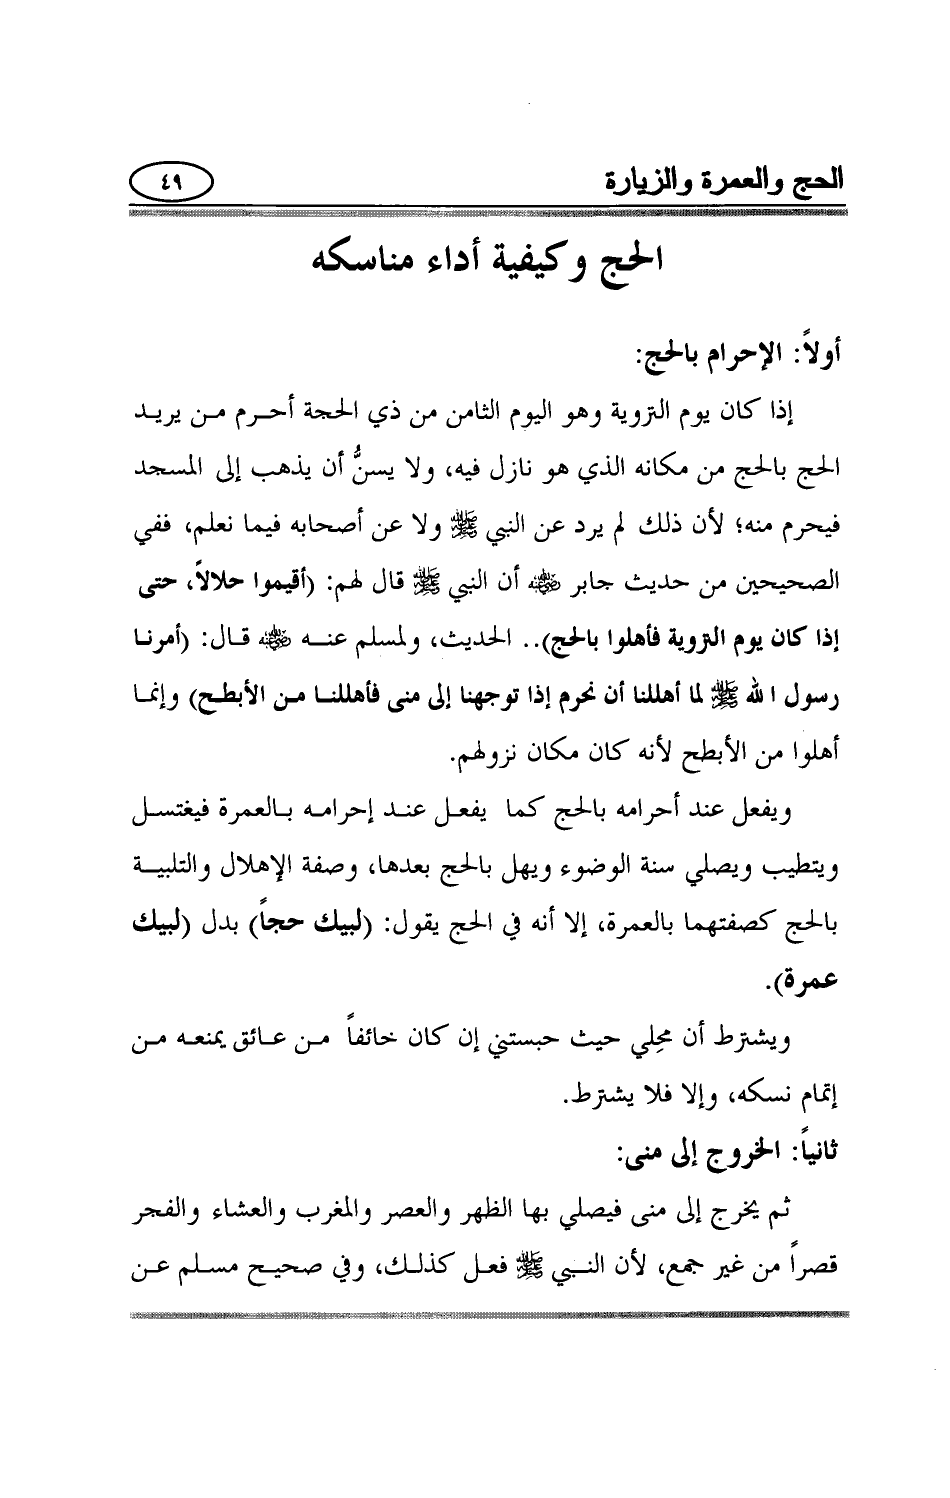 الحج والعمرة والزيارة
٤٩
الحج وكيفية أداء مناسكه
أولاً: الإحرام بالحج:
إذا كان يوم التروية وهو اليوم الثامن من ذي الحجة أحرم من يريد
الحج بالحج من مكانه الذي هو نازل فيه، ولا يسنُّ أن يذهب إلى المسجد
فيحرم منه؛ لأن ذلك لم يرد عن النبي ﷺ ولا عن أصحابه فيما نعلم، ففي
الصحيحين من حديث جابر ﵁ أن النبي ﷺ قال لهم: (أقيموا حلالاً، حتى
إذا كان يوم التروية فأهلوا بالحج).. الحديث، ولمسلم عنه ﵁ قال: (أمرنا
رسول الله ﷺ لما أهللنا أن نحرم إذا توجهنا إلى منى فأهللنا من الأبطح) وإنما
أهلوا من الأبطح لأنه كان مكان نزولهم.
ويفعل عند أحرامه بالحج كما يفعل عند إحرامه بالعمرة فيغتسل
ويتطيب ويصلي سنة الوضوء ويهل بالحج بعدها، وصفة الإهلال والتلبية
بالحج كصفتهما بالعمرة، إلا أنه في الحج يقول: (لبيك حجاً) بدل (لبيك
عمرة).
ويشترط أن محِلي حيث حبستني إن كان خائفاً من عائق يمنعه من
إتمام نسكه، وإلا فلا يشترط.
ثانياً: الخروج إلى منى:
ثم يخرج إلى منى فيصلي بها الظهر والعصر والمغرب والعشاء والفجر
قصراً من غير جمع، لأن النبي ﷺ فعل كذلك، وفي صحيح مسلم عن